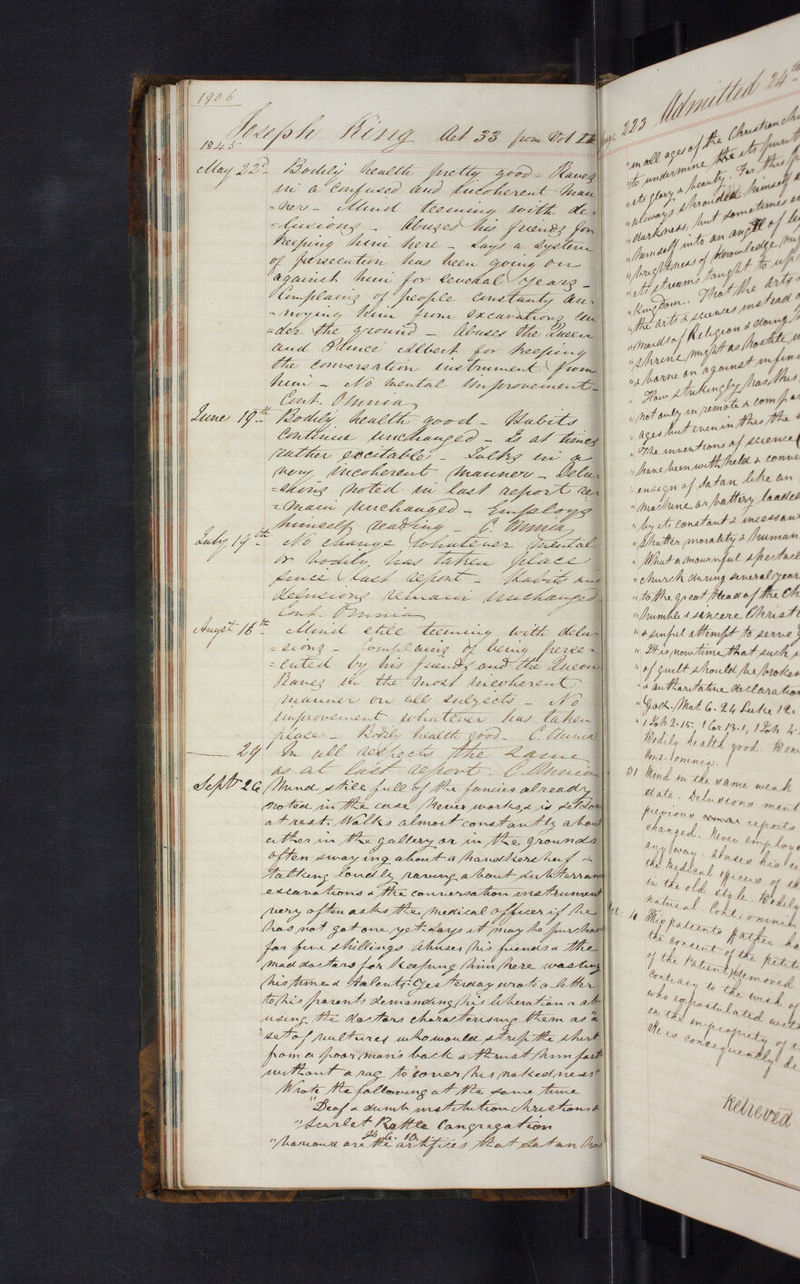 1906
Joseph King Aet 33 from Vol II page 223 Admitted 24th
1845
May 22d. Bodily health pretty good - Raves
in a confused and incoherent man
=ner - Mind teeming with de=
=lusions - Abuses his friends for
keeping him here - Says a system
of persecution has been going on
against him for several years -
Complains of people constantly an=
=noying him from excavations un
=der the ground - Abuses the Queen
and Prince Albert for keeping
the conversation instrument from
him - No mental improvement -
Cont. Omnia
June 19th Bodily health good - Habits
continue unchanged - Is at times
rather excitable - Talks in a
very incoherent manner - Delu=
=sions noted in last report re=
=main unchanged - Employs
himself reading - C. Omnia
July 14th No change whatever mental
or bodily has taken place
since last report - Habits and
delusions remain unchanged
Cont. Omnia
Augst 16th Mind still teeming with delu=
=sions - Complains of being perse=
=cuted by his friends and the Queen
Raves in the most incoherent
manner on all subjects - No
improvement whatever has taken
place - Bodily health good - C. Omnia
29 In all respects the same
as at last report. C. Omnia
Septr 26 Mind still full of the fancies already
noted in the case never works & is seldom
at rest. Walks almost constantly about
either in the gallery or in the grounds
often swaying about a handkerchief &
talking loudly raving about subterranean
excavations & the conversation instrument
very often asks the medical officer if he
has not got one yet: says it may be purchased
for five shillings abuses his friends & the
mad doctors for keeping him here wasting
his time & talents: Yesterday wrote a letter
to his parents demanding his liberation & ab
using the doctors characterising them as "a
set of vultures who would strip the shirt
from a poor man's back & thrust him fast
without a rag to cover his nakedness"
Wrote the following at the same time
"Deaf & dumb institution Christians &
"Scarlet Rattle Congregation
"Various are the artifices that Satan has
"in all ages of the Christian ch
"to undermine the its purit
"its glory & beauty. For this p
"always shrouded himself
"darkness, but sometimes
"himself into an angel of li
"brightness of knowledge
"its streams taught to
"Kingdom. That the arts
"the arts & sciences instead
"maids of Religion & doing
"shrine might as hostile
"a barne on against infin
"How strikingly has this
"not only in remote & comp
"ages but even in this the
"The inventions of science
"have been withheld & conve
"ensign of Satan like an
"machine or battery loaded
"by its constant & incessant
"Shatter morality & human
"What a mournful spectacl
"church during several year
"to the great Head of the Ch
"humble & sincere Christ
"& sinful attempt to serve
"It is now time that such
"of guilt should be broken
"& authoratative declaration
"God. Mat 6. 24 Luke 12.
"1 Joh 2.15. 1 Cor 13.1, 1 Joh 4.
Bodily health good.
Cons. omnia.
31 Mind in the same weak
state. Delusions ment
previous reports
changed. Never employ
any way. abuses his
the medical officers of
in the old style. Bodily
natural. Cont. omnia
Oct. 4 This patients father
the consent of the petiti
of the Patient removed
contrary to the wish of
who expostulated with
on the impropriety of
He is consequently di
Relieved